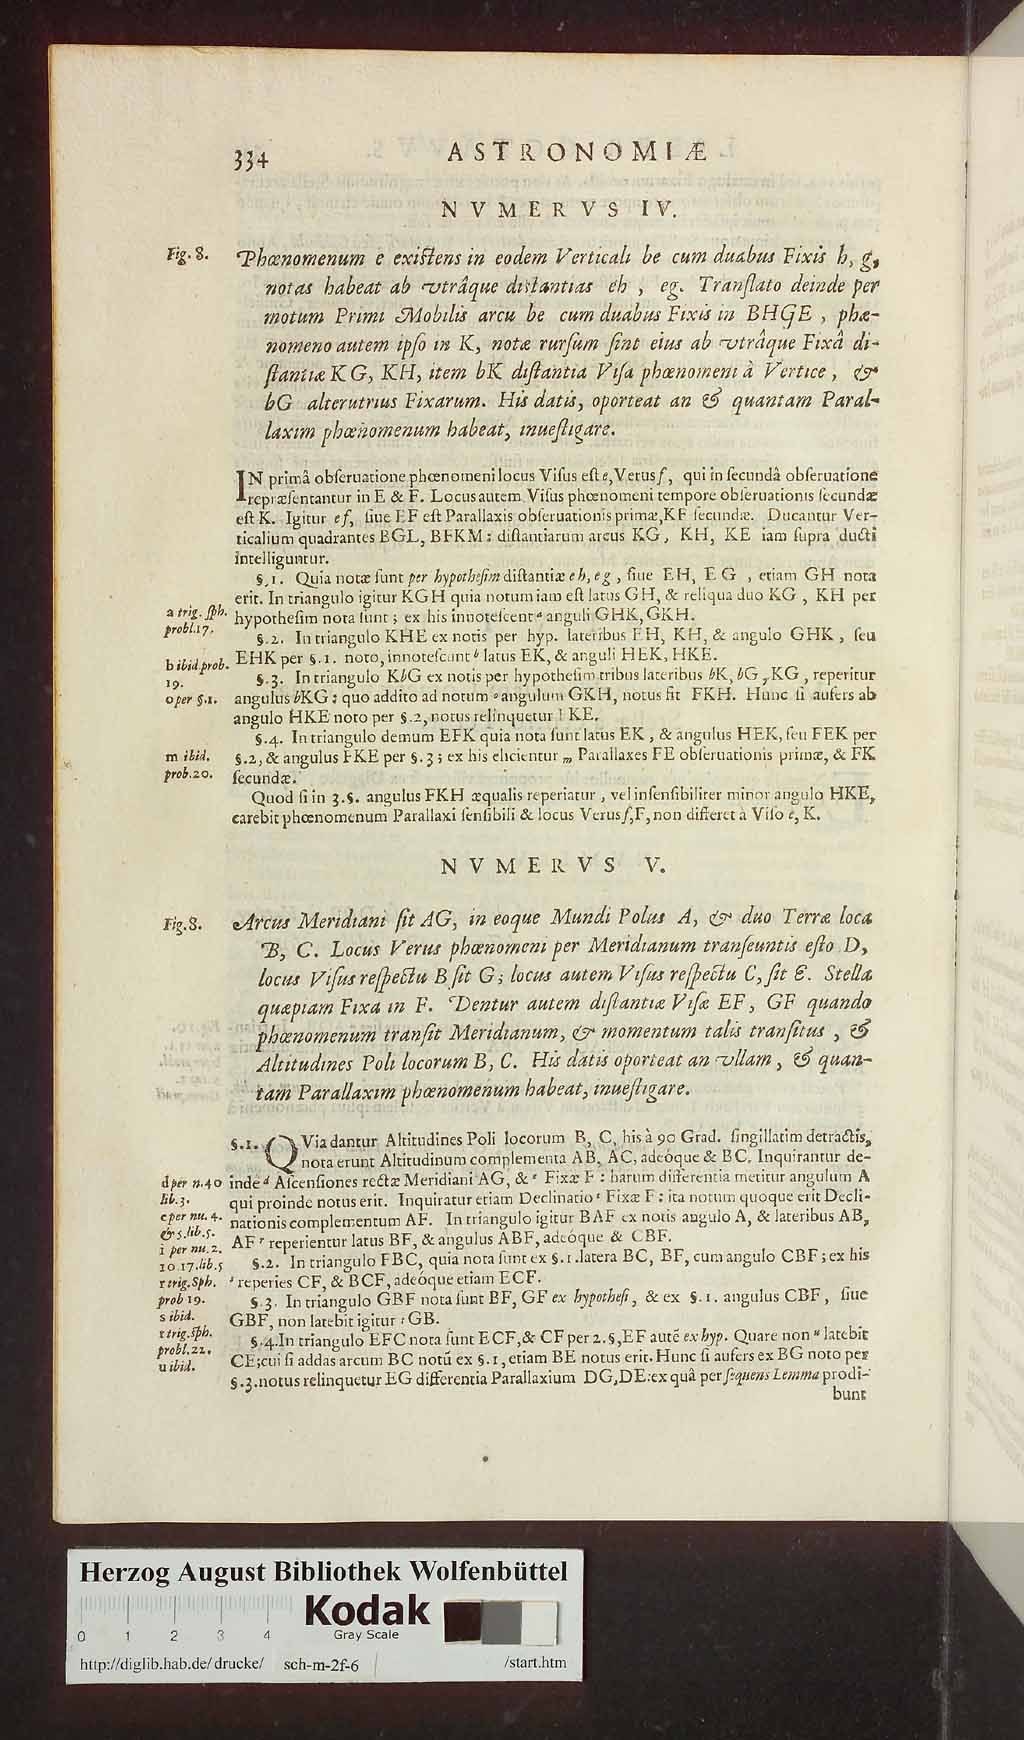 334 ASTRONOMIÆ
NVMERVS IV.
Fig. 8. Phœnomenum e exiſtens in eodem Verticali be cum duabus Fixis h, g,
notas habeat ab vtrâque diſtantias eh , eg. Tranſlato deinde per
motum Primi Mobilis arcu be cum duabus Fixis in BHGE , phæ-
nomeno autem ipſo in K, notæ rurſum ſint eius ab vtrâque Fixâ di-
ſtantiæ KG, KH, item bK diſtantia Viſa phœnomeni à Vertice , &
bG alterutrius Fixarum. His datis, oporteat an & quantam Paral-
laxim phœnomenum habeat, inueſtigare.
IN primâ obſeruatione phœnomeni locus Viſus eſt e, Verus f, qui in ſecundâ obſeruatione
repræſentantur in E & F. Locus autem Viſus phœnomeni tempore obſeruationis ſecundæ
eſt K. Igitur ef, ſiue EF eſt Parallaxis obſeruationis primæ, KF ſecundæ. Ducantur Ver-
ticalium quadrantes BGL, BFKM: diſtantiarum arcus KG, KH, KE iam ſupra ducti
intelliguntur.
§.1. Quia notæ ſunt per hypotheſim diſtantiæ eh, eg , ſiue EH, EG , etiam GH nota
erit. In triangulo igitur KGH quia notum iam eſt latus GH, & reliqua duo KG , KH per
a trig. ſph. hypotheſim nota ſunt ; ex his innoteſcent a anguli GHK, GKH.
probl.17.
§.2. In triangulo KHE ex notis per hyp. lateribus EH, KH, & angulo GHK , ſeu
b ibid prob. EHK per §.1. noto, innoteſcunt b latus EK, & anguli HEK, HKE.
19. §.3. In triangulo KbG ex notis per hypotheſim tribus lateribus bK, bG, KG , reperitur
o per §.1. angulus bKG ; quo addito ad notum o angulum GKH, notus fit FKH. Hunc ſi aufers ab
angulo HKE noto per §.2, notus relinquetur FKE.
§.4. In triangulo demum EFK quia nota ſunt latus EK , & angulus HEK, ſeu FEK per
m ibid. §.2, & angulus FKE per §.3 ; ex his elicientur m Parallaxes FE obſeruationis primæ, & FK
prob.20. ſecundæ.
Quod ſi in 3.§. angulus FKH æqualis reperiatur , vel inſenſibiliter minor angulo HKE,
carebit phœnomenum Parallaxi ſenſibili & locus Verus f, F, non differet à Viſo e, K.
NVMERVS V.
Fig. 8. Arcus Meridiani ſit AG, in eoque Mundi Polus A, & duo Terræ loca
B, C. Locus Verus phœnomeni per Meridianum tranſeuntis eſto D,
locus Viſus reſpectu B ſit G; locus autem Viſus reſpectu C, ſit E. Stella
quæpiam Fixa in F. Dentur autem diſtantiæ Viſæ EF, GF quando
phœnomenum tranſit Meridianum, & momentum talis tranſitus , &
Altitudines Poli locorum B, C. His datis oporteat an vllam , & quan-
tam Parallaxim phœnomenum habeat, inueſtigare.
§.1. QVia dantur Altitudines Poli locorum B, C, his à 90 Grad. ſingillatim detractis,
nota erunt Altitudinum complementa AB, AC, adeóque & BC. Inquirantur de-
d per n.40 inde d Aſcenſiones rectæ Meridiani AG, & e Fixæ F : harum differentia metitur angulum A
lib.3. qui proinde notus erit. Inquiratur etiam Declinatio i Fixæ F : ita notum quoque erit Decli-
e per nu. 4. nationis complementum AF. In triangulo igitur BAF ex notis angulo A, & lateribus AB,
& 5. lib.5.
i per nu.2. AF r reperientur latus BF, & angulus ABF, adeóque & CBF.
10.17.lib.5 §.2. In triangulo FBC, quia nota ſunt ex §.1. latera BC, BF, cum angulo CBF ; ex his
r trig. Sph. s reperies CF, & BCF, adeóque etiam ECF.
prob 19. §.3. In triangulo GBF nota ſunt BF, GF ex hypotheſi, & ex §.1. angulus CBF , ſiue
s ibid. GBF, non latebit igitur t GB.
t trig. ſph. §.4. In triangulo EFC nota ſunt ECF, & CF per 2.§, EF autē ex hyp. Quare non u latebit
probl.22.
u ibid. CE; cui ſi addas arcum BC notū ex §.1, etiam BE notus erit. Hunc ſi aufers ex BG noto per
§.3. notus relinquetur EG differentia Parallaxium DG, DE: ex quâ per ſequens Lemma prodi-
bunt
Herzog August Bibliothek Wolfenbüttel
Kodak
Gray Scale
0 1 2 3 4
http://diglib.hab.de/drucke/ sch-m-2f-6 /start.htm